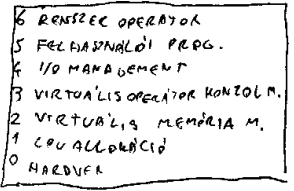 6 RENSZER OPERÁTOR
5 FELHASZNÁLÓI PROG.
4 I/O MANAGEMENT
3 VIRTUÁLIS OPERÁTOR KONZOL M.
2 VIRTUÁLIS MEMÓRIA M.
1 CPU ALLOKÁCIÓ
0 HARDVER